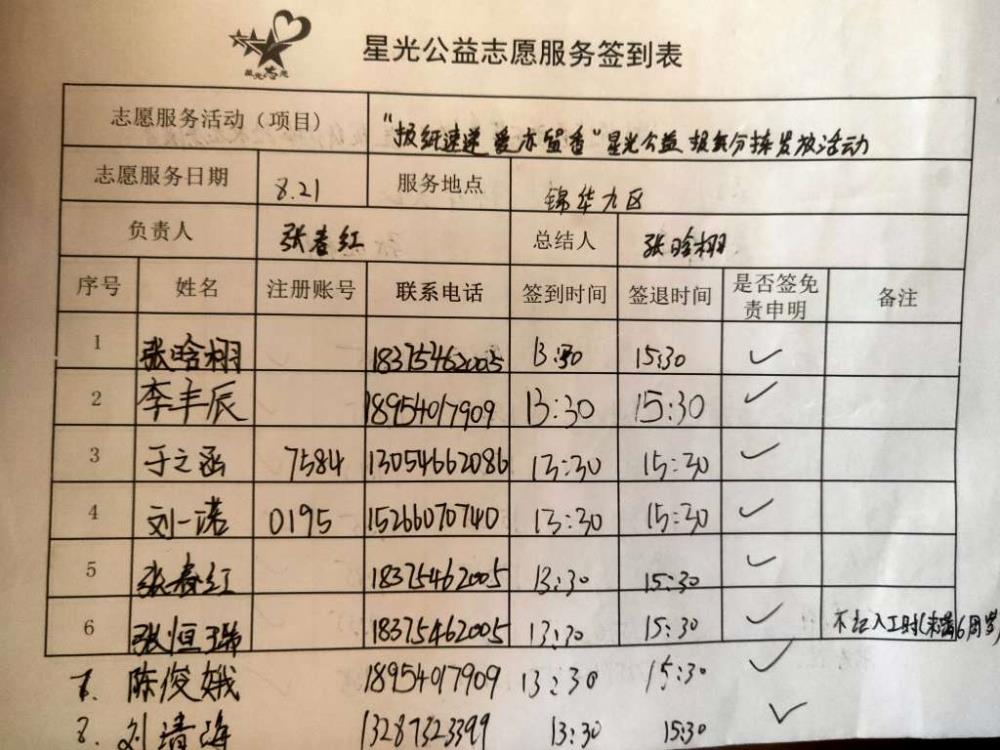 星光公益志愿服务签到表
志愿服务活动（项目） "报纸速递 爱亦留香"星光公益 报纸分拣发放活动
志愿服务日期 8.21 服务地点 锦华九区
负责人 张春红 总结人 张晗栩
序号 姓名 注册账号 联系电话 签到时间 签退时间 是否签免责申明 备注
1 张晗栩 18375462005 13:30 15:30 ✓
2 李丰辰 18954017909 13:30 15:30 ✓
3 于之涵 7584 13054662086 13:30 15:30 ✓
4 刘一诺 0195 15266070740 13:30 15:30 ✓
5 张春红 18375462005 13:30 15:30 ✓
6 张恒瑞 18375462005 13:30 15:30 ✓ 不记入工时(未满6周岁)
7. 陈俊娥 18954017909 13:30 15:30 ✓
8. 刘清海 13287323399 13:30 15:30 ✓